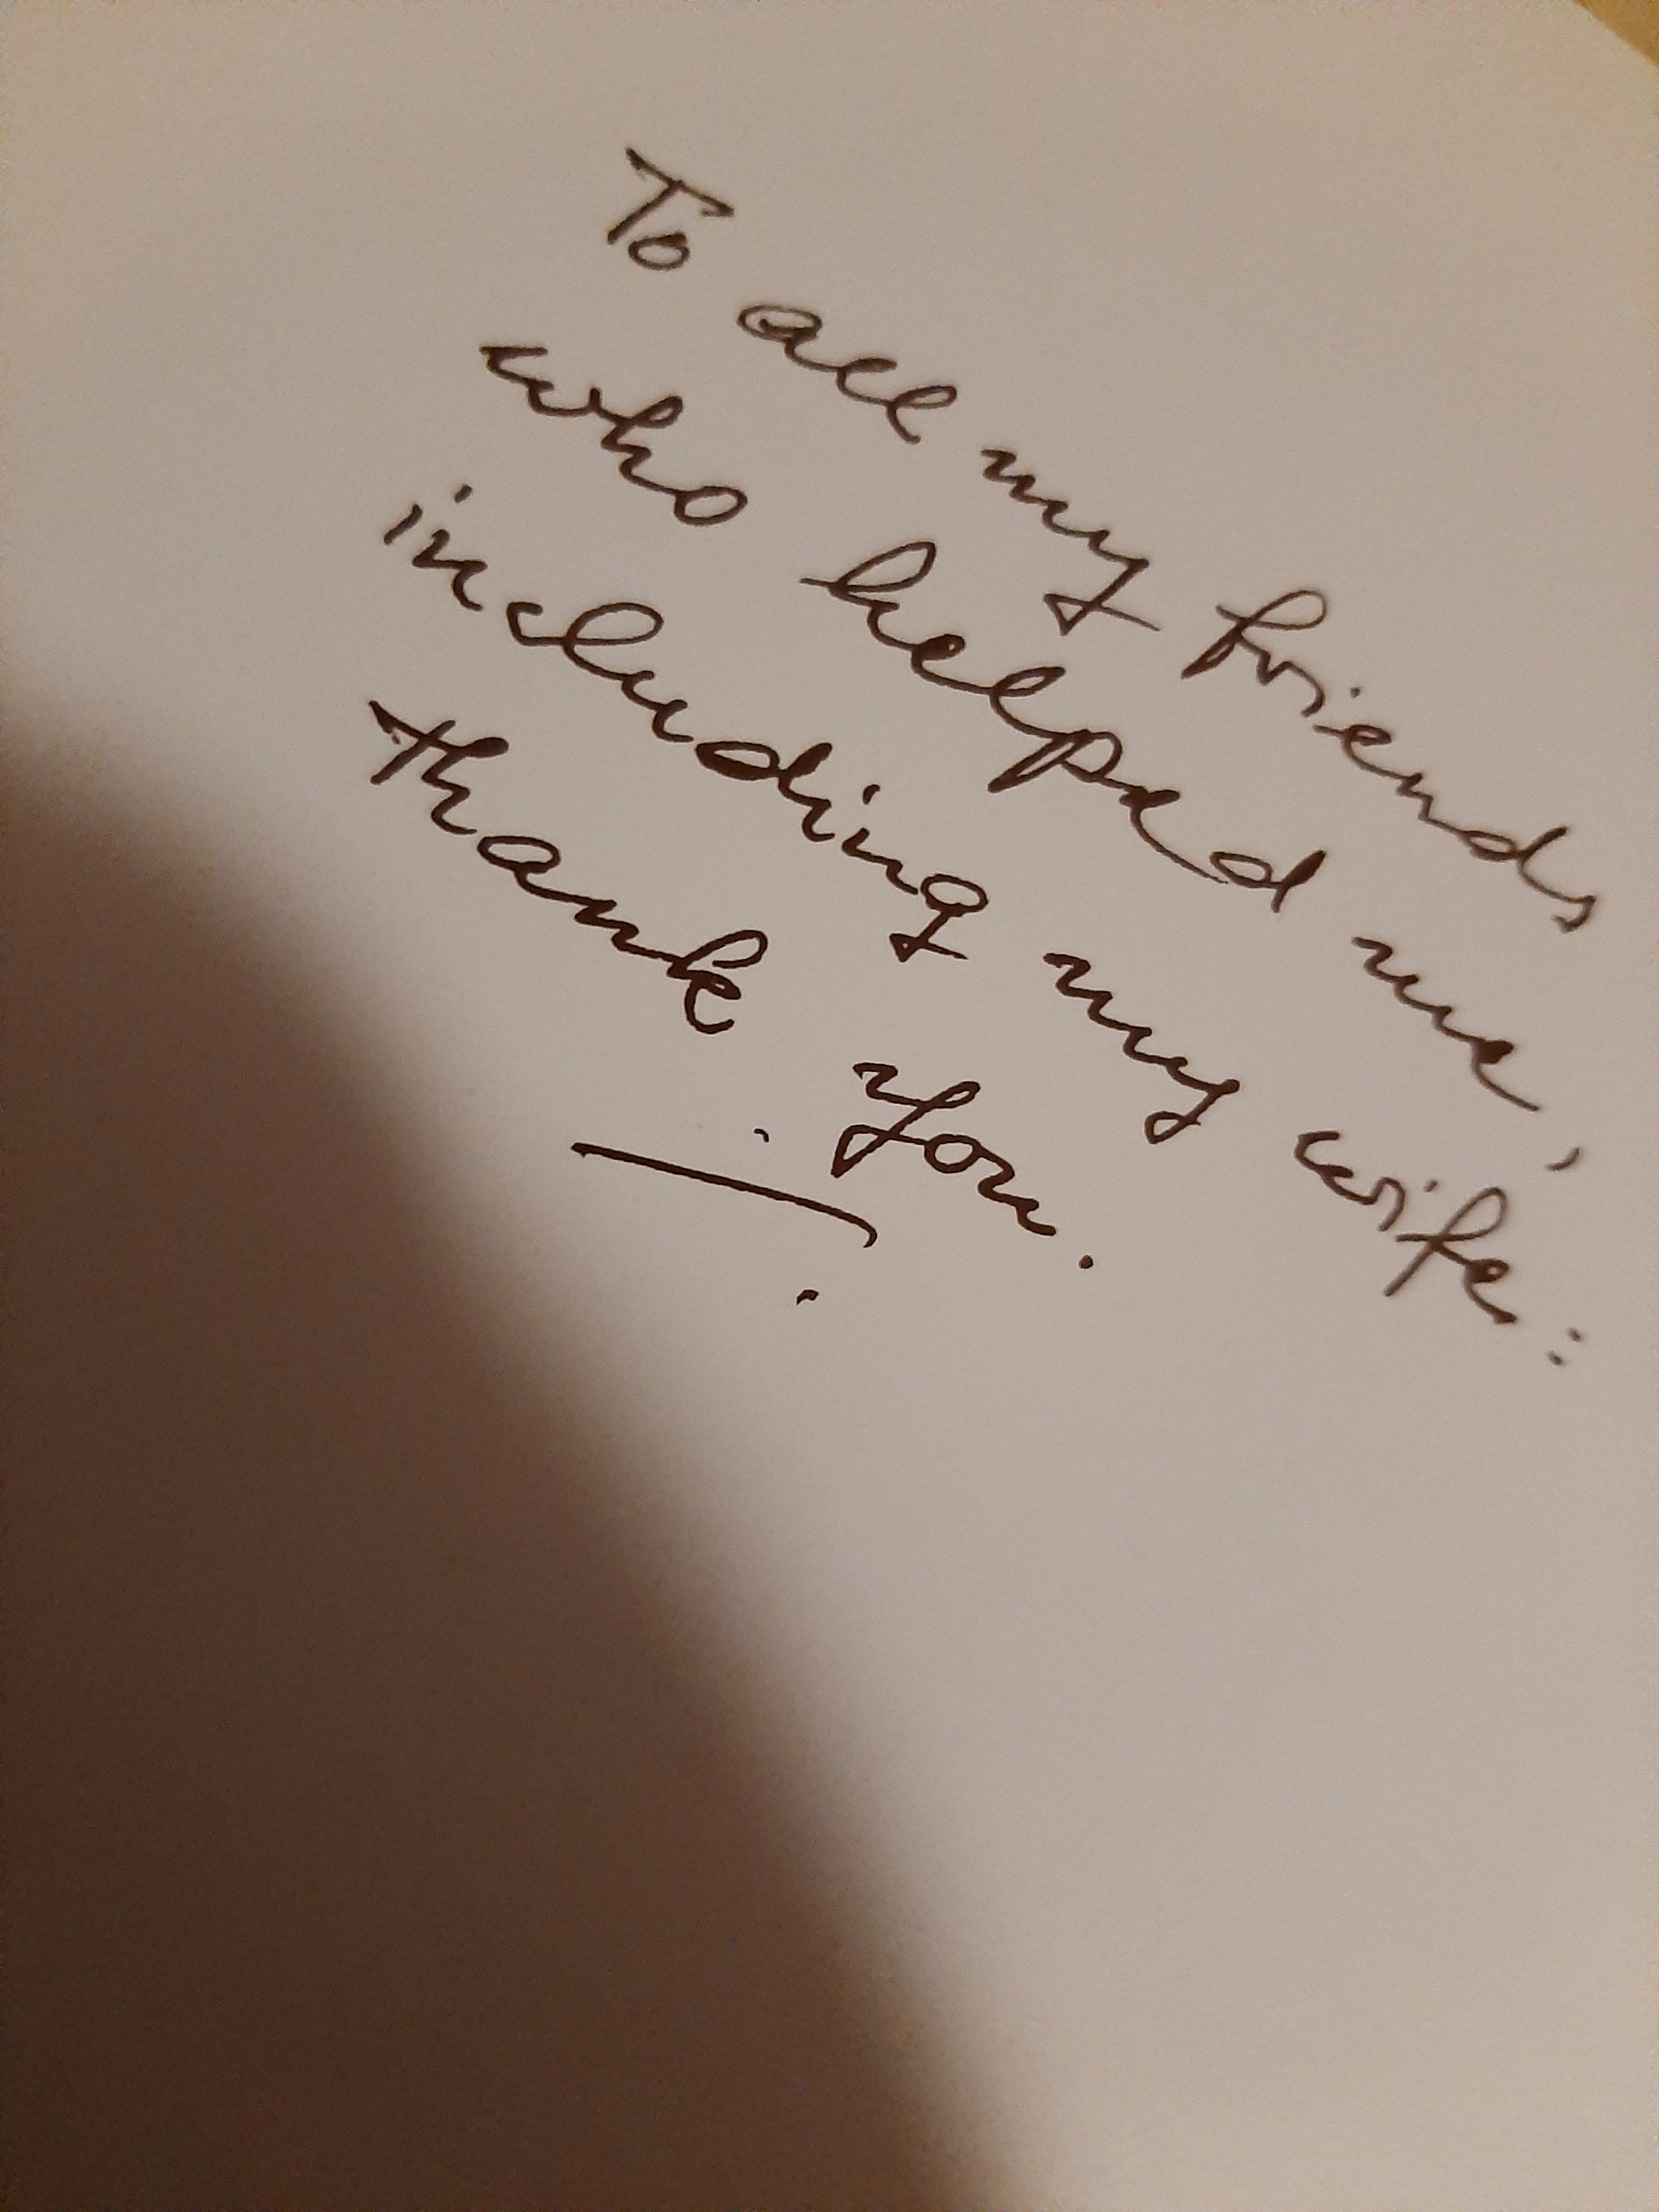 To all my friends
who helped me,
including my wife:
thank you.